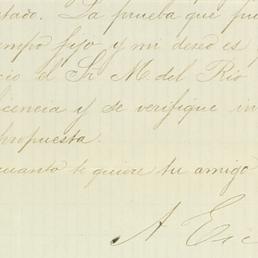 tado. La prueba que pu
empo fijo y mi deseo es
cio el Sr M. del Rio
licencia y se verifique in
propuesta.
cuanto te quiere tu amigo
A